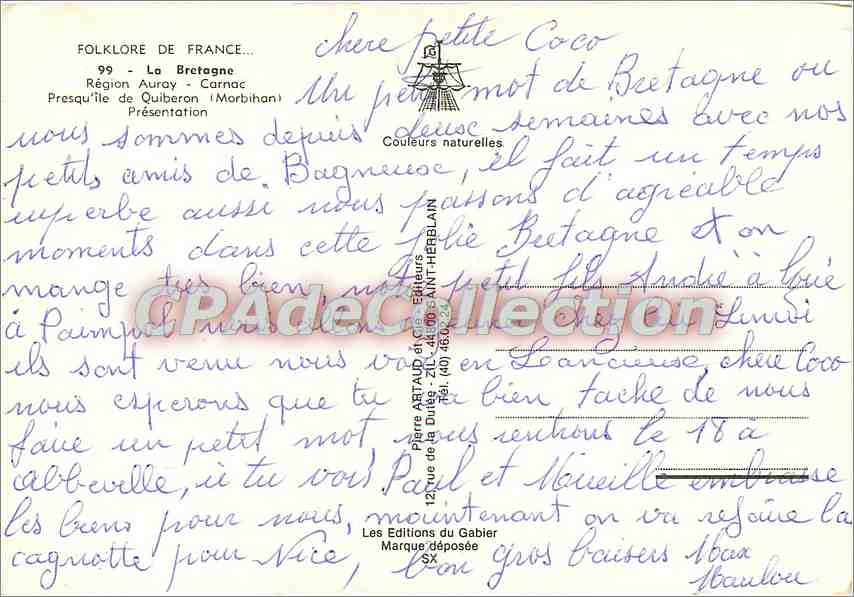 FOLKLORE DE FRANCE...
99 - La Bretagne
Région Auray - Carnac
Presqu'île de Quiberon (Morbihan)
Présentation
Couleurs naturelles
chere petite Coco
Un petit mot de Bretagne ou
nous sommes depuis deux semaines avec nos
petits amis de Bagneux, il fait un temps
superbe aussi nous passons d'agréable
moments dans cette jolie Bretagne et on
mange très bien, notre petit fils André à loué
à Paimpol nous chez la
ils sont venu nous voir en chere Coco
nous esperons que tu va bien tache de nous
faire un petit mot, nous rentrons le 18 à
abbeville, si tu vois Paul et Mireille embrasse
les biens pour nous, maintenant on va refaire la
cagnotte pour Nice, bon gros baisers Max
Malou
Pierre ARTAUD et Cie - Editeurs
12, rue de la Dutée - ZIL - 44800 SAINT-HERBLAIN
Tél. (40) 46.02.24
Les Editions du Gabier
Marque déposée
SX
CPAdeCollection